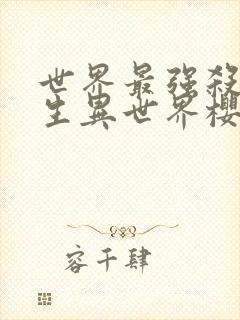 世界最強殺
生異世界櫻
容千肆